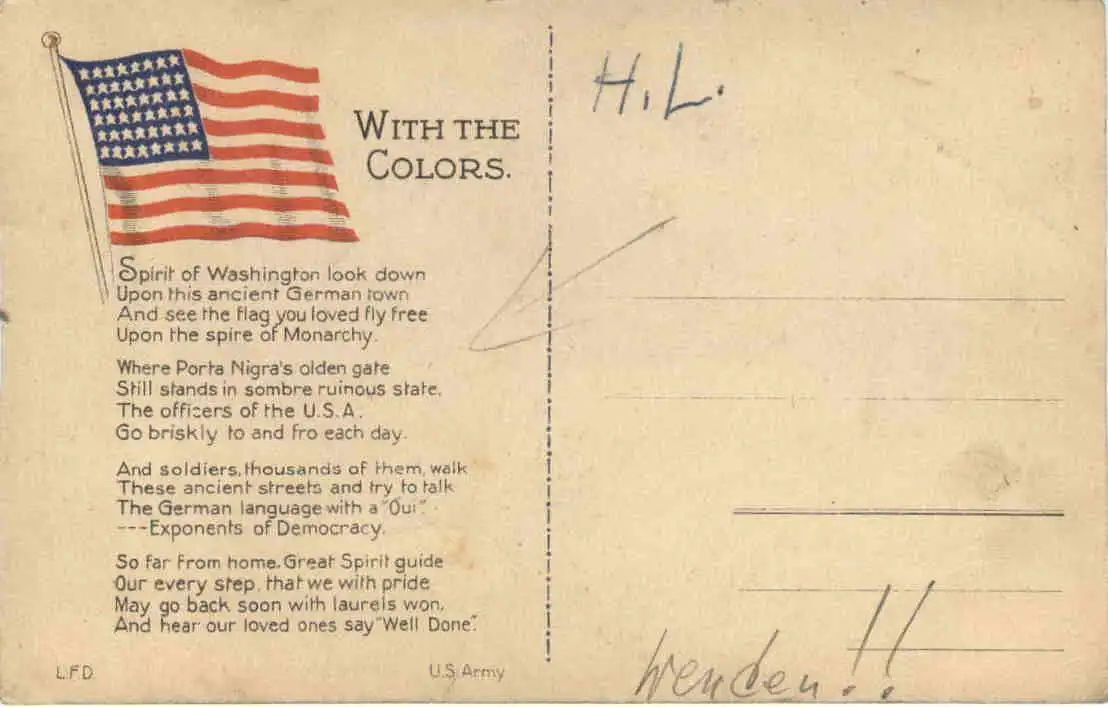 WITH THE
COLORS.
Spirit of Washington look down
Upon this ancient German town
And see the flag you loved fly free
Upon the spire of Monarchy.
Where Porta Nigra's olden gate
Still stands in sombre ruinous state,
The officers of the U.S.A.
Go briskly to and fro each day.
And soldiers, thousands of them, walk
These ancient streets and try to talk
The German language with a "Oui".
---Exponents of Democracy.
So far from home, Great Spirit guide
Our every step, that we with pride
May go back soon with laurels won,
And hear our loved ones say "Well Done".
L.F.D.
U.S. Army
H. L.
Wenden!!